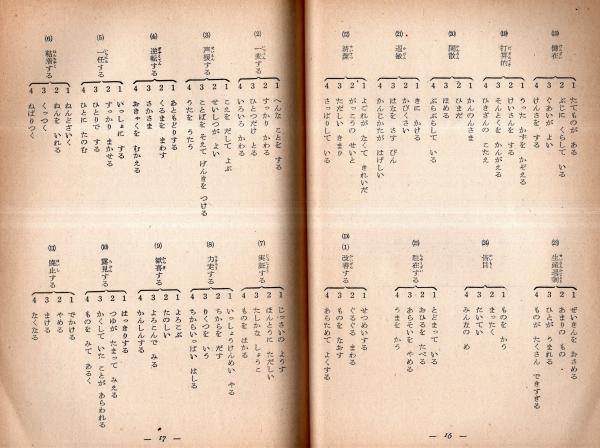 ⒅ 健在
1 たてものが ある
2 ぶじに くらして いる
3 ぐあいが よい
4 けんさを する
⒆ 打算的
1 うった かずを かぞえる
2 けいさんを する
3 そんとくを かんがえる
4 ひきざんの こたえ
⒇ 閑散
1 かんのんさま
2 ひまだ
3 ほめる
4 ぶらぶらして いる
(21) 過敏
1 きに かける
2 かびくさい
3 はなを さす びん
4 かんじかたが はげしい
(22) 清潔
1 よごれが なくて きれいだ
2 がっこうの せいと
3 ただしい きまり
4 さっぱりして いる
(23) 生産過剰
1 ぜいきんを おさめる
2 あまりの もの
3 ひとが うまれる
4 ものが たくさん できすぎる
(24) 皆目
1 ものを かう
2 まったく
3 たいてい
4 みんなの め
(25) 駐在する
1 とどまって いる
2 おひるを たべる
3 あらそいを やめる
4 うまを かう
(D)
(1) 改善する
1 せつめいする
2 ぐるぐる まわる
3 ものを なおす
4 あらためて よくする
— 16 —
(2) 一変する
1 へんな ことを する
2 すっかり かわる
3 ひとつだけ とる
4 いろいろ かわる
(3) 声援する
1 こえを だして よぶ
2 せいしつが よい
3 ことばを そえて げんきを つける
4 うたを うたう
(4) 逆転する
1 あともどりする
2 くるまを まわす
3 さかさま
4 おきゃくを むかえる
(5) 一任する
1 いっしょに する
2 すっかり まかせる
3 ひとりで する
4 ひとに たのむ
(6) 粘着する
1 ねんどざいく
2 ねんを いれる
3 くっつく
4 ねばりつく
(7) 実証する
1 じっさいの ようす
2 ほんとうに ただしい
3 たしかな しょうこ
4 ものを はかる
(8) 力走する
1 いっしょうけんめい やる
2 ちからを だす
3 りくつを いう
4 ちからいっぱい はしる
(9) 歓喜する
1 よろこぶ
2 たのしい
3 よろこんで みる
4 かんしんする
(10) 露見する
1 はっきりする
2 つゆが たまって みえる
3 かくして いた ことが あらわれる
4 ものを みて あるく
(11) 廃止する
1 でかける
2 やめる
3 まける
4 なくなる
— 17 —